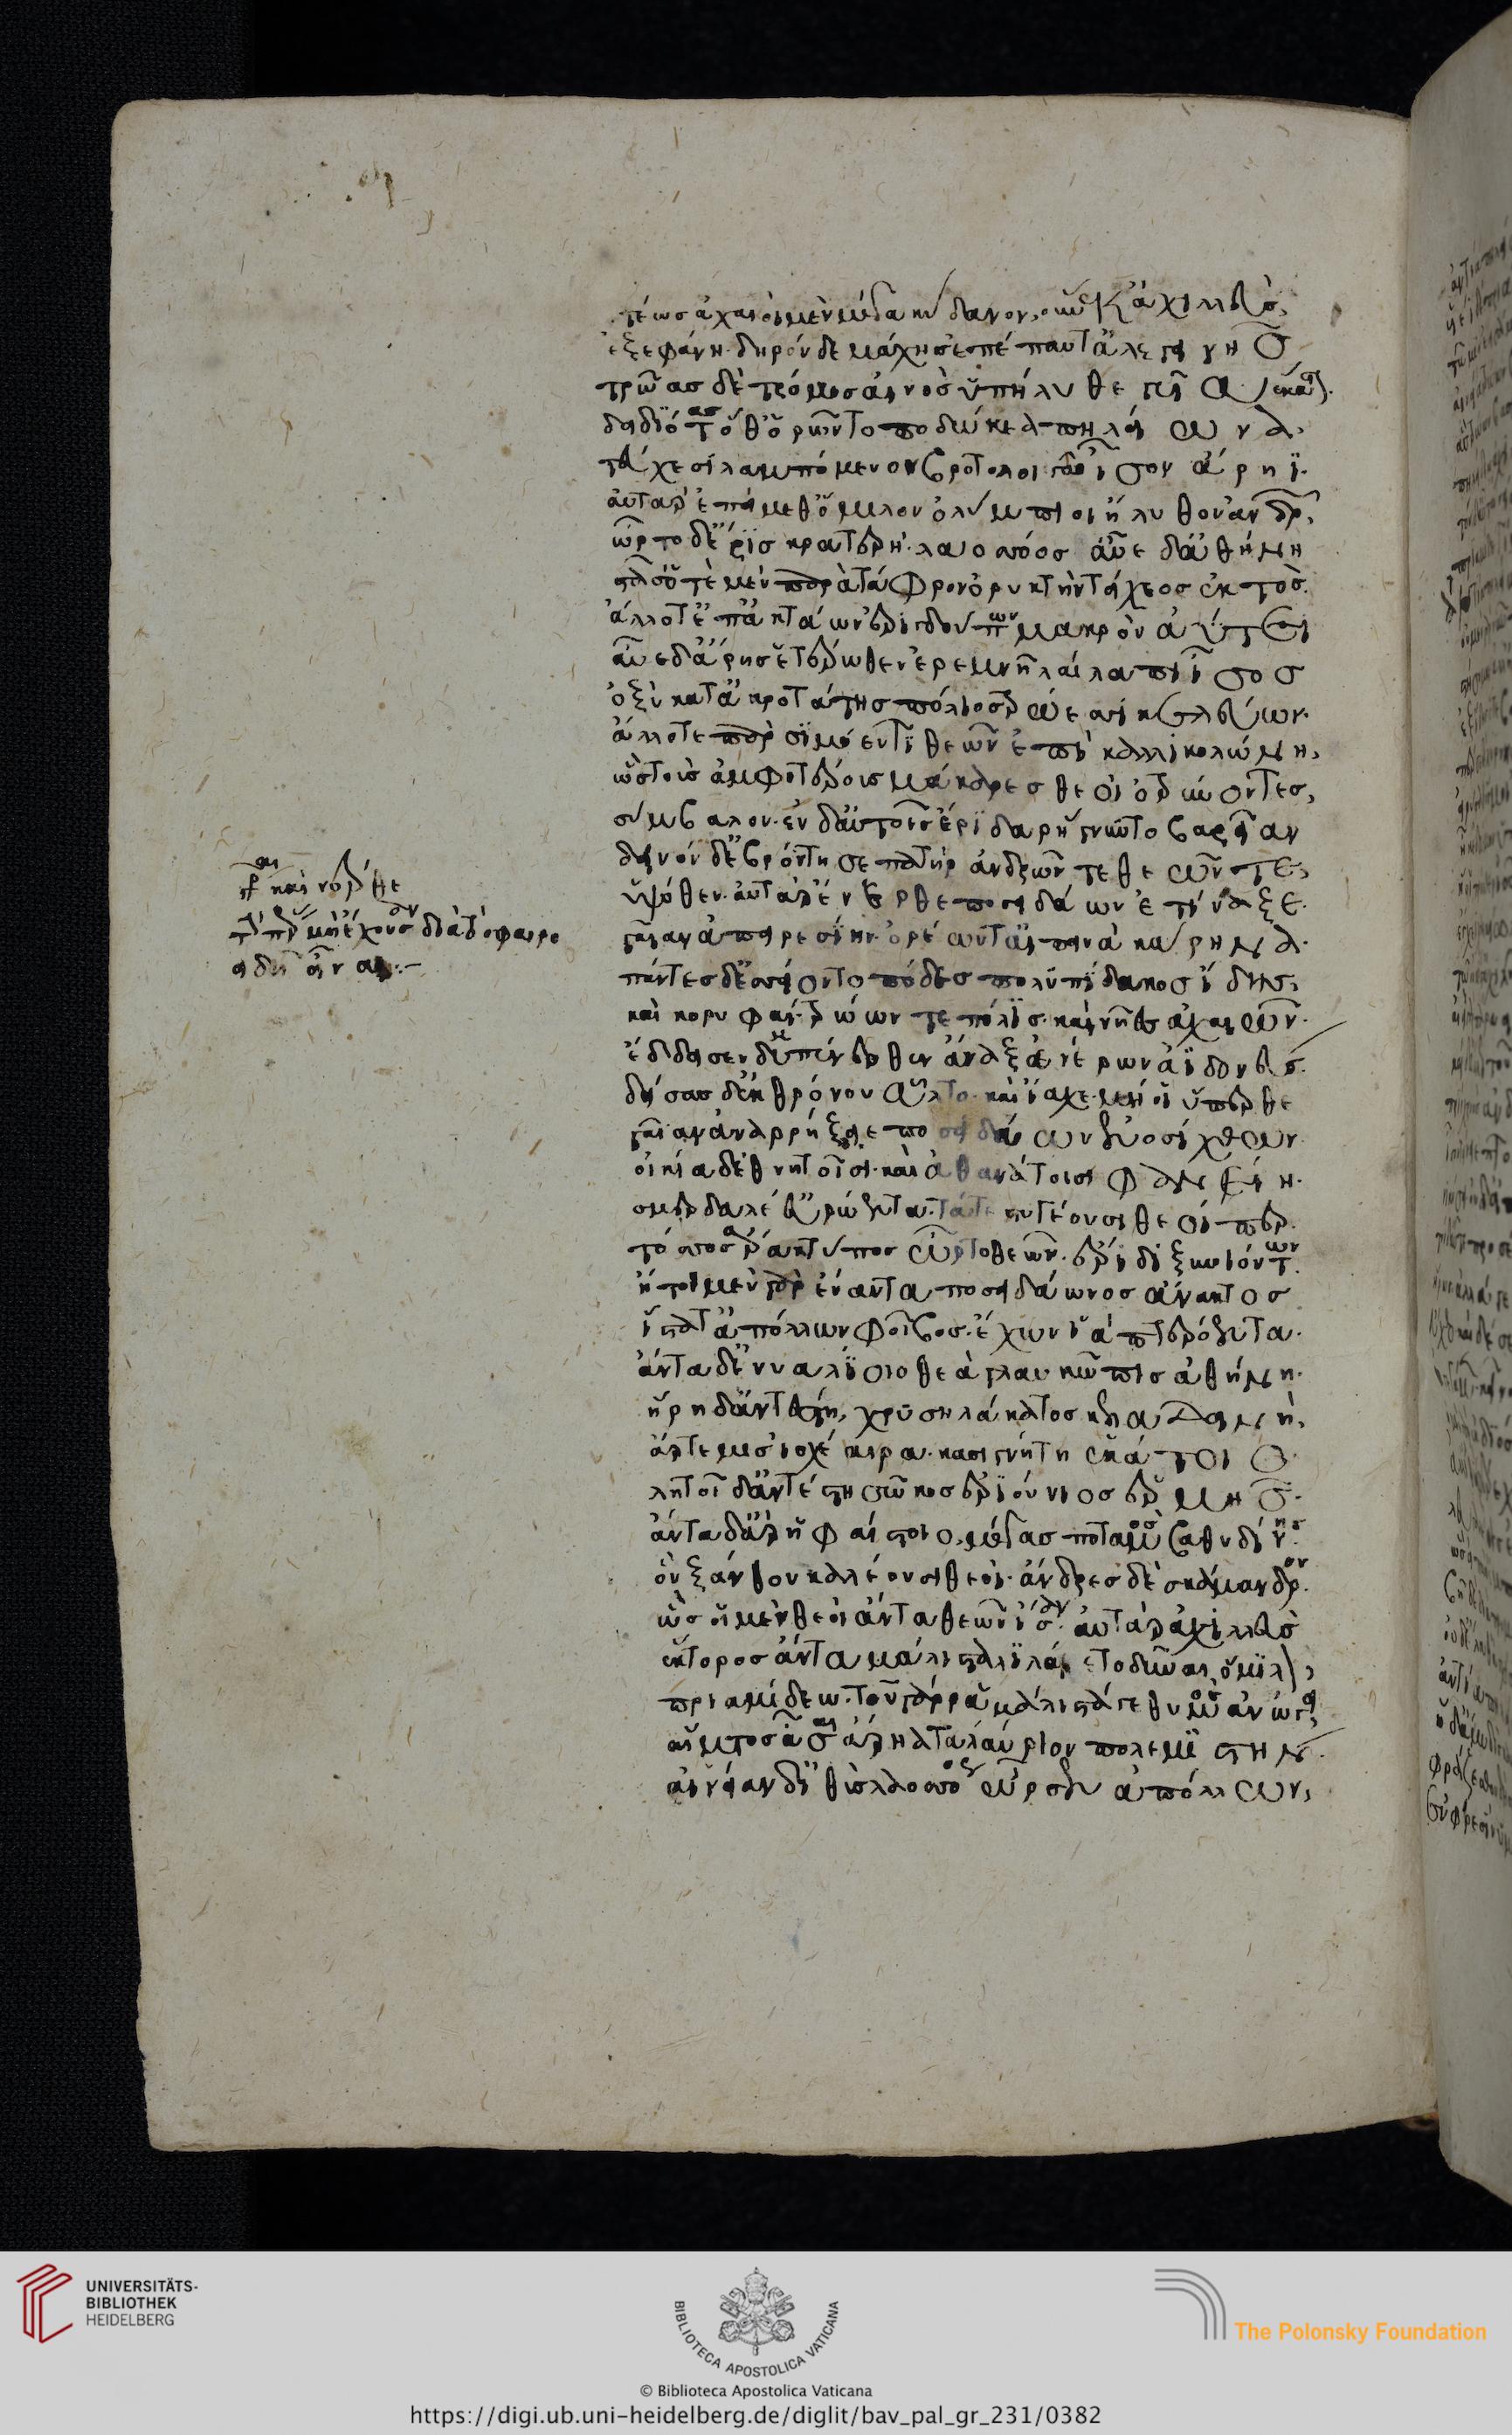 τέως ἀχαιοὶ μὲν μέγα κύδανον, οὕνεκ' ἀχιλλεὺς,
ἐξεφάνη· δηρὸν δὲ μάχης ἐπέπαυτ' ἀλεγεινῆς
τρῶας δὲ τρόμος αἰνὸς ὑπήλυθε γυῖα ἕκαστον.
δειδιότας ὅθ' ὁρῶντο ποδώκεα πηλείωνα,
τεύχεσι λαμπόμενον βροτολοιγῶ ἶσον ἄρηϊ.
αὐτὰρ ἐπεὶ μεθ' ὅμιλον ὀλύμπιοι ἤλυθον ἀνδρῶν,
ὦρτο δ' ἔρις κρατερὴ· λαοσσόος αὖε δ' ἀθήνη
στᾶσ' ὁτὲ μὲν παρὰ τάφρον ὀρυκτὴν τείχεος ἐκτὸς.
ἄλλοτ' ἐπ' ἀκτάων ἐριδούπων μακρὸν ἀΰτει
αὖε δ' ἄρης ἑτέρωθεν ἐρεμνῆ λαίλαπι ἶσος
ὀξὺ κατ' ἀκροτάτης πόλιος τρώεσσι κελεύων.
ἄλλοτε παρ σιμόεντι θέων ἐπὶ καλλικολώνη,
ὣς τοὺς ἀμφοτέρους μάκαρες θεοὶ ὀτρύνοντες,
σύμβαλον· ἐν δ' αὐτοῖς ἔριδα ῥήγνυντο βαρεῖαν
δεινὸν δ' ἐβρόντησε πατὴρ ἀνδρῶν τε θεῶν τε,
ὑψόθεν· αὐτὰρ ἔνερθε ποσειδάων ἐτίναξε
γαῖαν ἀπειρεσίην· ὀρέων τ' αἰπεινὰ κάρηνα.
πάντες δ' ἐσσείοντο πόδες πολυπίδακος ἴδης,
καὶ κορυφαί· τρώων τε πόλις· καὶ νῆες ἀχαιῶν.
ἔδδεισεν δ' ὑπένερθεν ἄναξ ἐνέρων ἀϊδονεύς.
δείσας δ' ἐκ θρόνου ἆλτο· καὶ ἴαχε· μὴ οἱ ὕπερθε
γαῖαν ἀναρρήξειε ποσειδάων ἐνοσίχθων
οἰκία δὲ θνητοῖσι· καὶ ἀθανάτοισι φανείη.
σμερδαλέ' εὐρώεντα· τάτε στυγέουσι θεοί περ.
τόσσος ἄρα κτύπος ὦρτο θεῶν· ἔριδι ξυνιόντων.
ἤτοι μὲν γὰρ ἔναντα ποσειδάωνος ἄνακτος
ἵστατ' ἀπόλλων φοῖβος· ἔχων ἰὰ πτερόεντα.
ἄντα δ' ἐνυαλίοιο θεὰ γλαυκῶπις ἀθήνη.
ἥρη δ' ἀντέστη, χρυσηλάκατος κελαδεινὴ,
ἄρτεμις ἰοχέαιρα· κασιγνήτη ἑκάτοιο
λητοῖ δ' ἀντέστη σῶκος ἐριούνιος ἑρμῆς.
ἄντα δ' ἄρ' ἡφαίστοιο, μέγας ποταμὸς βαθυδίνης.
ὃν ξάνθον καλέουσι θεοὶ· ἄνδρες δὲ σκάμανδρον.
ὣς οἱ μὲν θεοὶ ἄντα θεῶν ἴσαν· αὐτὰρ ἀχιλλεὺς
ἕκτορος ἄντα μάλιστα λιλαίετο δῦναι ὅμιλον,
πριαμίδεω· τοῦ γάρ ῥα μάλιστά γε θυμὸς ἀνώγει,
αἵματος ἆσαι ἄρηα ταλαύρινον πολεμιστήν.
αἰνείαν δ' ἰθὺς λαοσσόος ὦρσεν ἀπόλλων,
καὶ νέρθε
διὰ τὸ σφαιρο
UNIVERSITÄTS-
BIBLIOTHEK
HEIDELBERG
BIBLIOTECA APOSTOLICA VATICANA
The Polonsky Foundation
© Biblioteca Apostolica Vaticana
https://digi.ub.uni-heidelberg.de/diglit/bav_pal_gr_231/0382